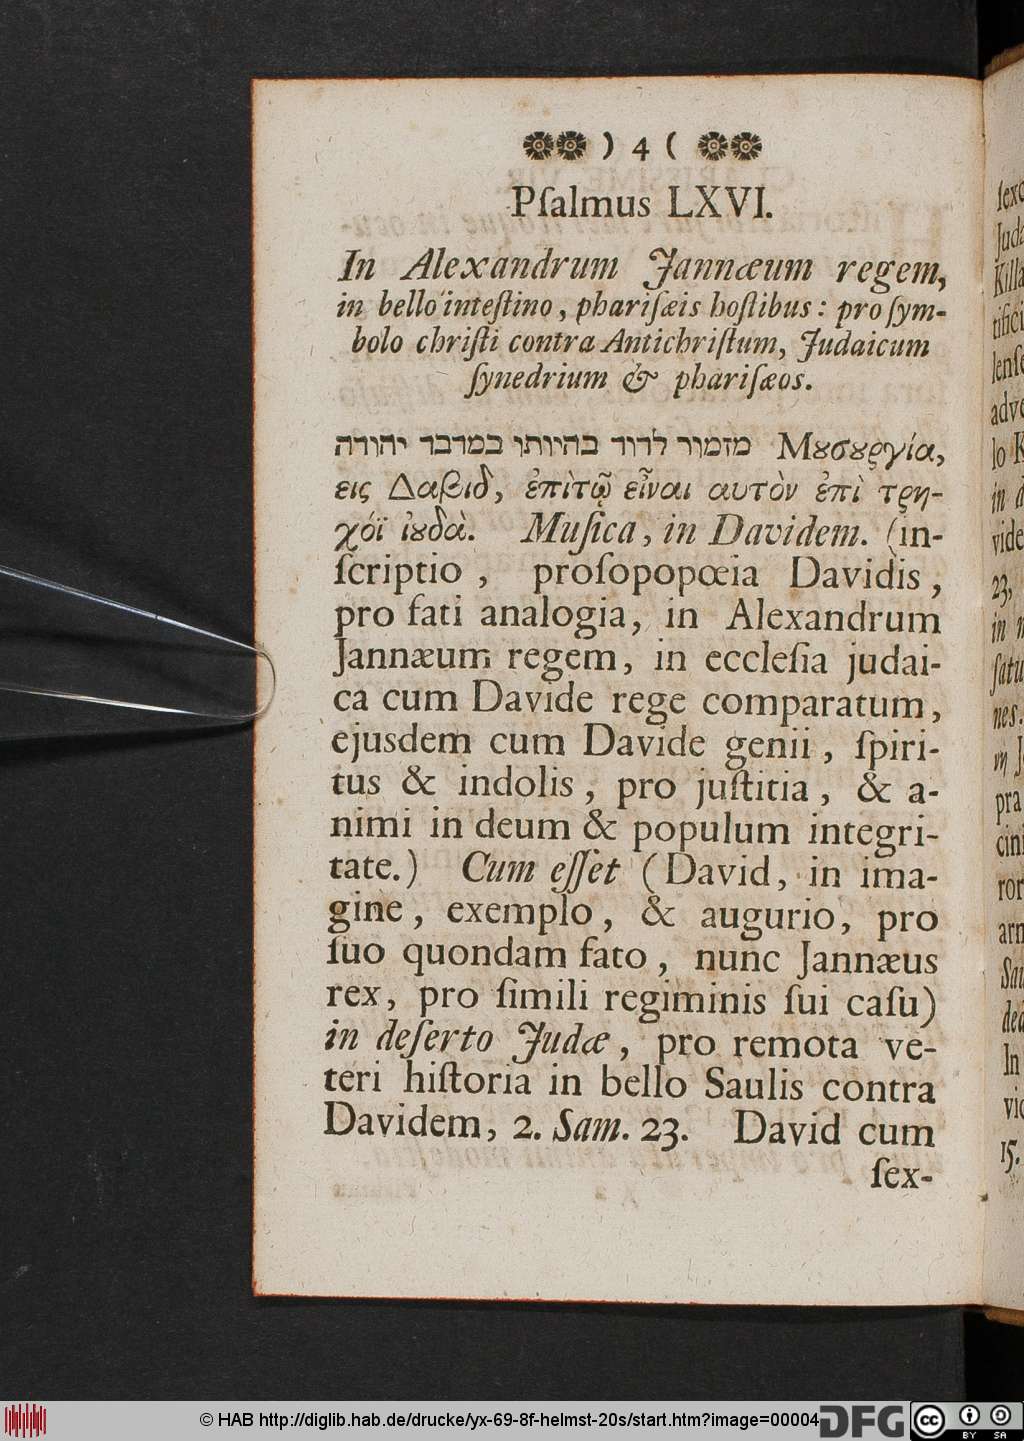 ) 4 (
Pſalmus LXVI.
In Alexandrum Jannæum regem,
in bello inteſtino, phariſæis hoſtibus: pro ſym-
bolo chriſti contra Antichriſtum, Judaicum
ſynedrium & phariſæos.
מזמור לדוד בהיותו במדבר יהודה Μȣσȣργία,
εις Δαβιδ, ἐπὶτῷ εἶναι αυτὸν ἐπὶ τρη-
χόϊ ἰȣδὰ. Muſica, in Davidem. (in-
ſcriptio, proſopopœia Davidis,
pro fati analogia, in Alexandrum
Jannæum regem, in eccleſia judai-
ca cum Davide rege comparatum,
ejusdem cum Davide genii, ſpiri-
tus & indolis, pro juſtitia, & a-
nimi in deum & populum integri-
tate.) Cum eſſet (David, in ima-
gine, exemplo, & augurio, pro
ſuo quondam fato, nunc Jannæus
rex, pro ſimili regiminis ſui caſu)
in deſerto Judæ, pro remota ve-
teri hiſtoria in bello Saulis contra
Davidem, 2. Sam. 23. David cum
ſex-
ſexc
Juda
Killa
tifici
lenſe
adve
lo K
in d
vide
23,
in
ſatu
nes.
J
pra
cini
ror
arn
Sau
dea
In
vic
15.
© HAB http://diglib.hab.de/drucke/yx-69-8f-helmst-20s/start.htm?image=00004
DFG
cc
BY SA